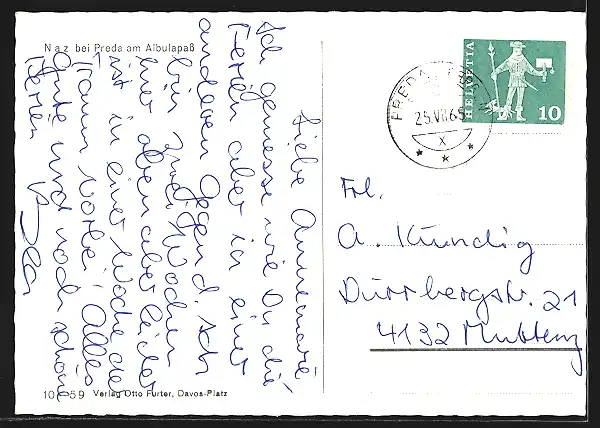 Naz bei Preda am Albulapaß
Liebe Annemarie
Ich geniesse wie Du die
Ferien aber in einer
anderen Gegend. Ich
bin zwei Wochen
hier oben aber leider
ist in einer Woche der
Traum vorbei. Alles
Gute und noch schöne
Ferien
10 659 Verlag Otto Furter, Davos-Platz
PREDA
25.VII.65
X
HELVETIA
10
Frl.
A. Kündig
Dürrbergstr. 21
4132 Muttenz